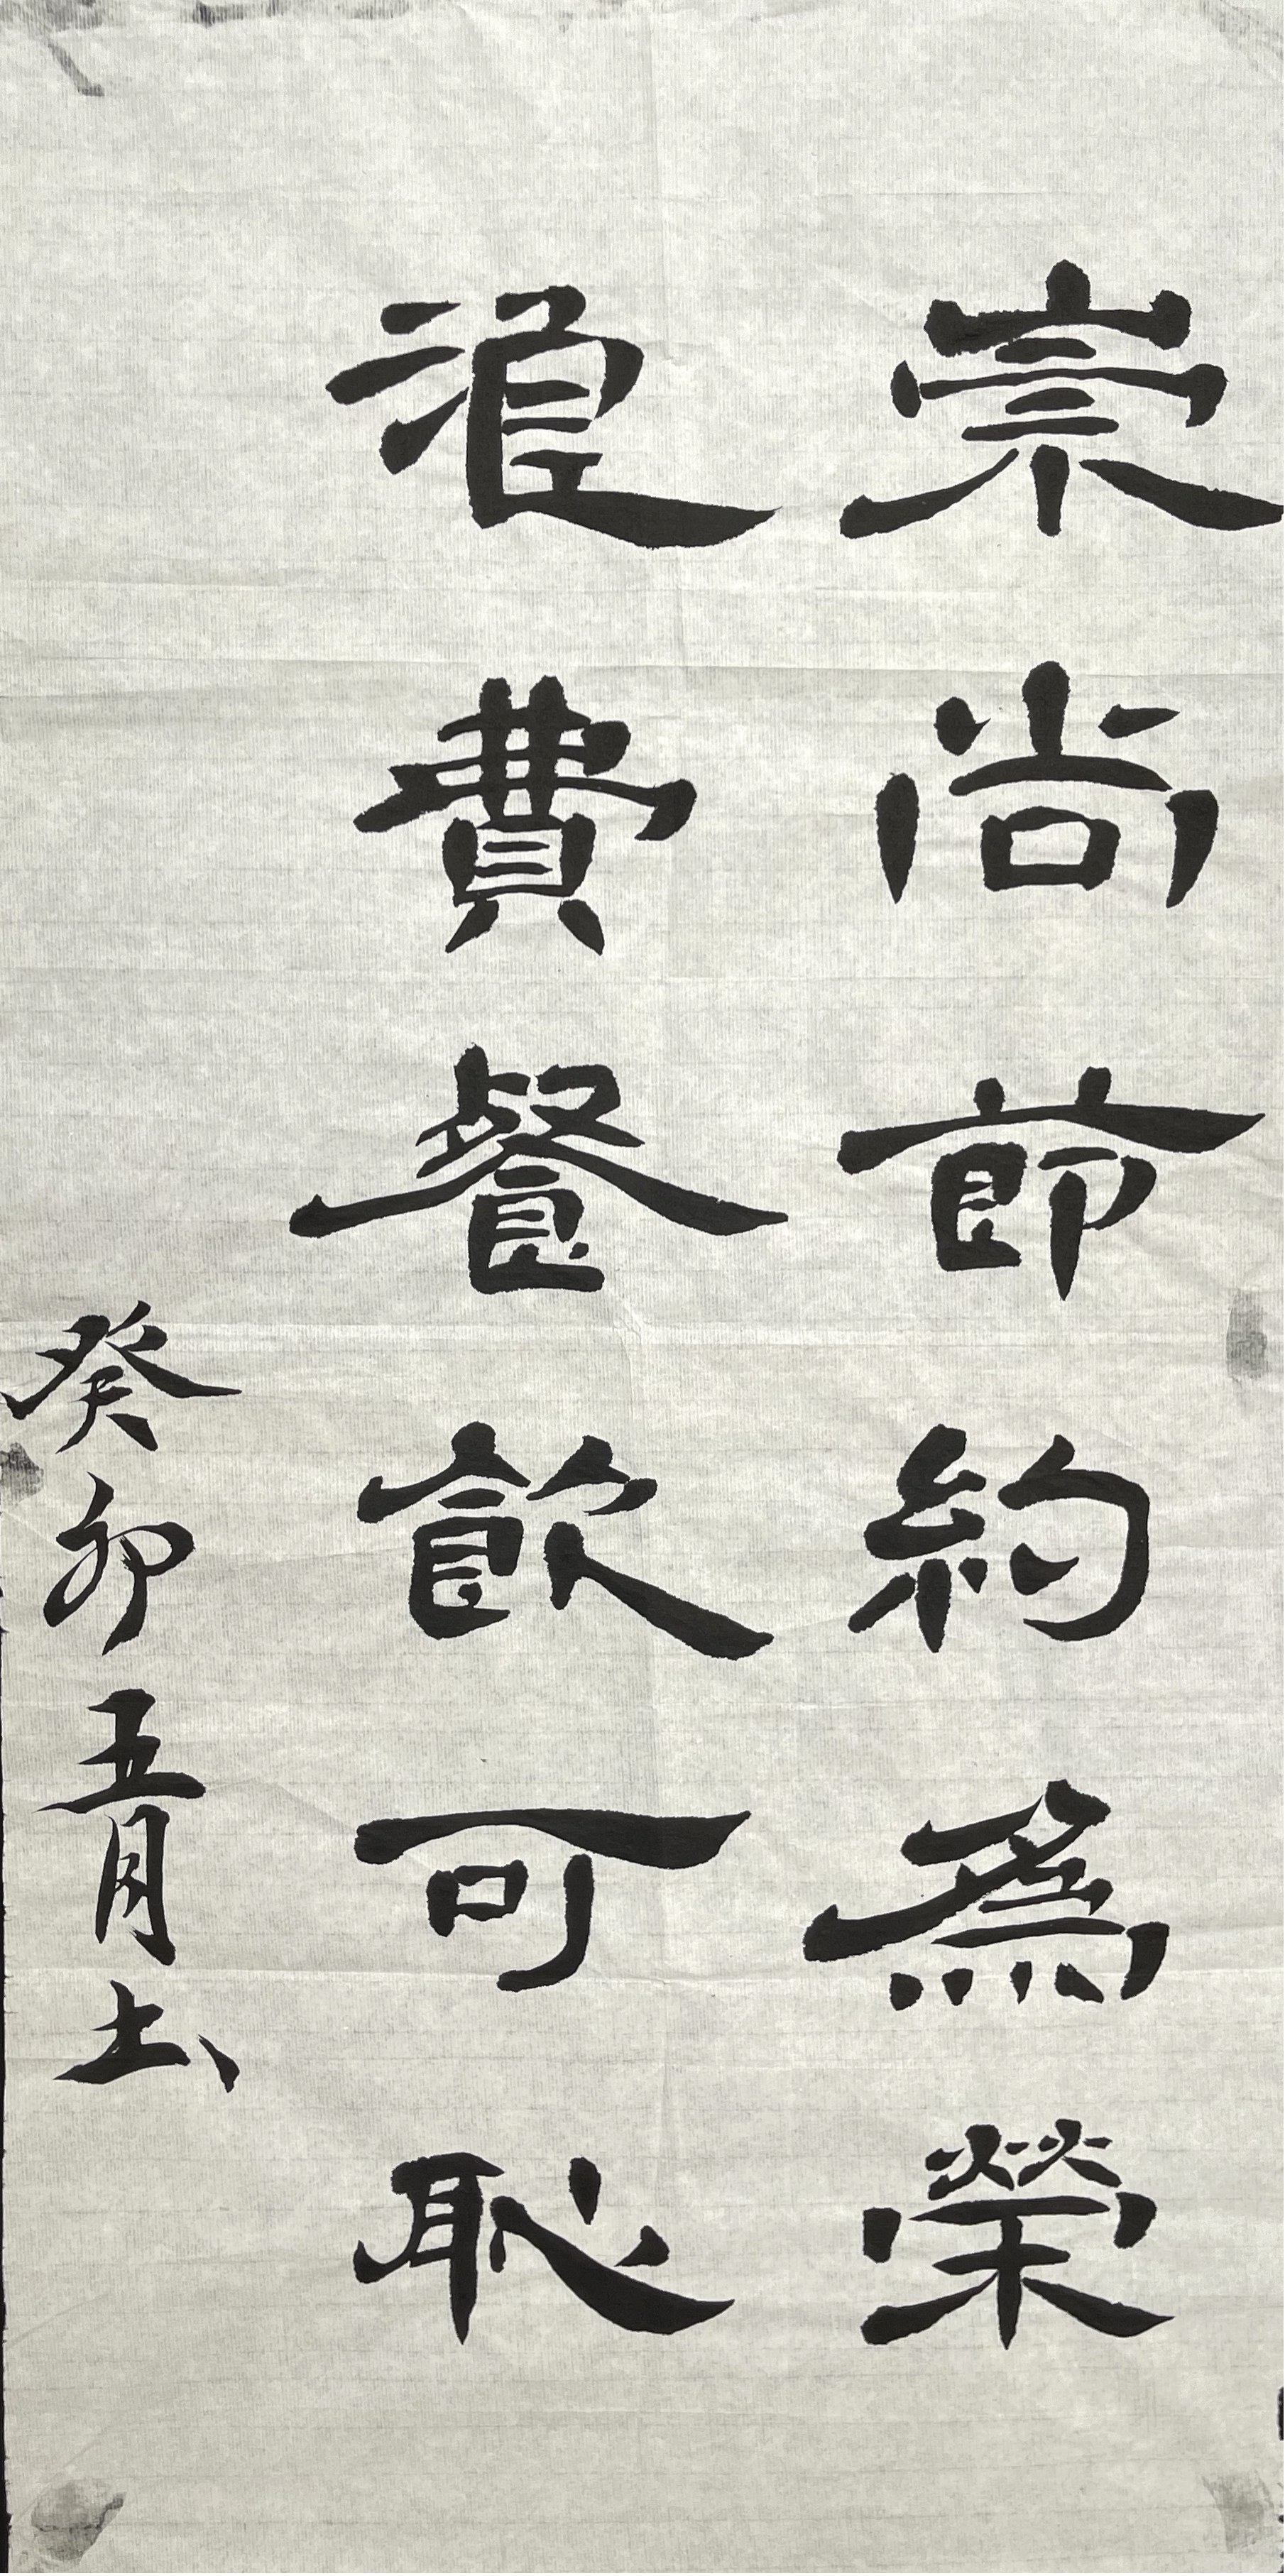 崇尚節約為榮
浪費餐飲可恥
癸卯五月圡